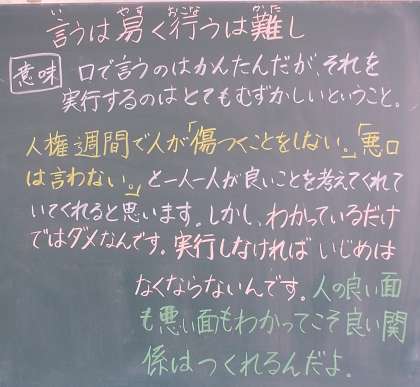 言うは易く行うは難し
意味 口で言うのはかんたんだが、それを
実行するのはとてもむずかしいということ。
人権週間で人が「傷つくことをしない。」「悪口
は言わない。」と一人一人が良いことを考えてくれて
いてくれると思います。しかし、わかっているだけ
ではダメなんです。実行しなければいじめは
なくならないんです。人の良い面
も悪い面もわかってこそ良い関
係はつくれるんだよ。